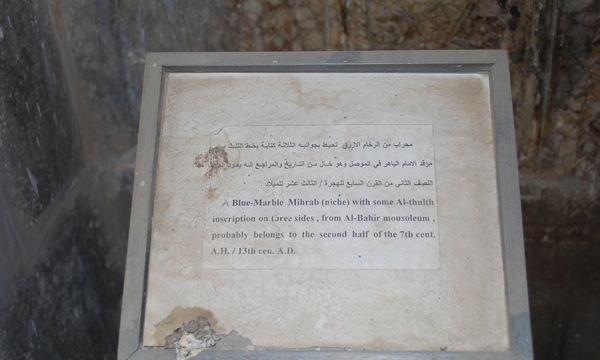 محراب من الرخام الازرق تحيط بجوانبه الثلاثة كتابة بخط الثلث
مرقد الامام الباهر في الموصل وهو خال من التاريخ والمراجع انه يعود
النصف الثاني من القرن السابع للهجرة / الثالث عشر للميلاد
A Blue-Marble Mihrab (niche) with some Al-thulth
inscription on sides , from Al-Bahir mousoleum ,
probably belongs to the second half of the 7th cent.
A.H. / 13th cen. A.D.